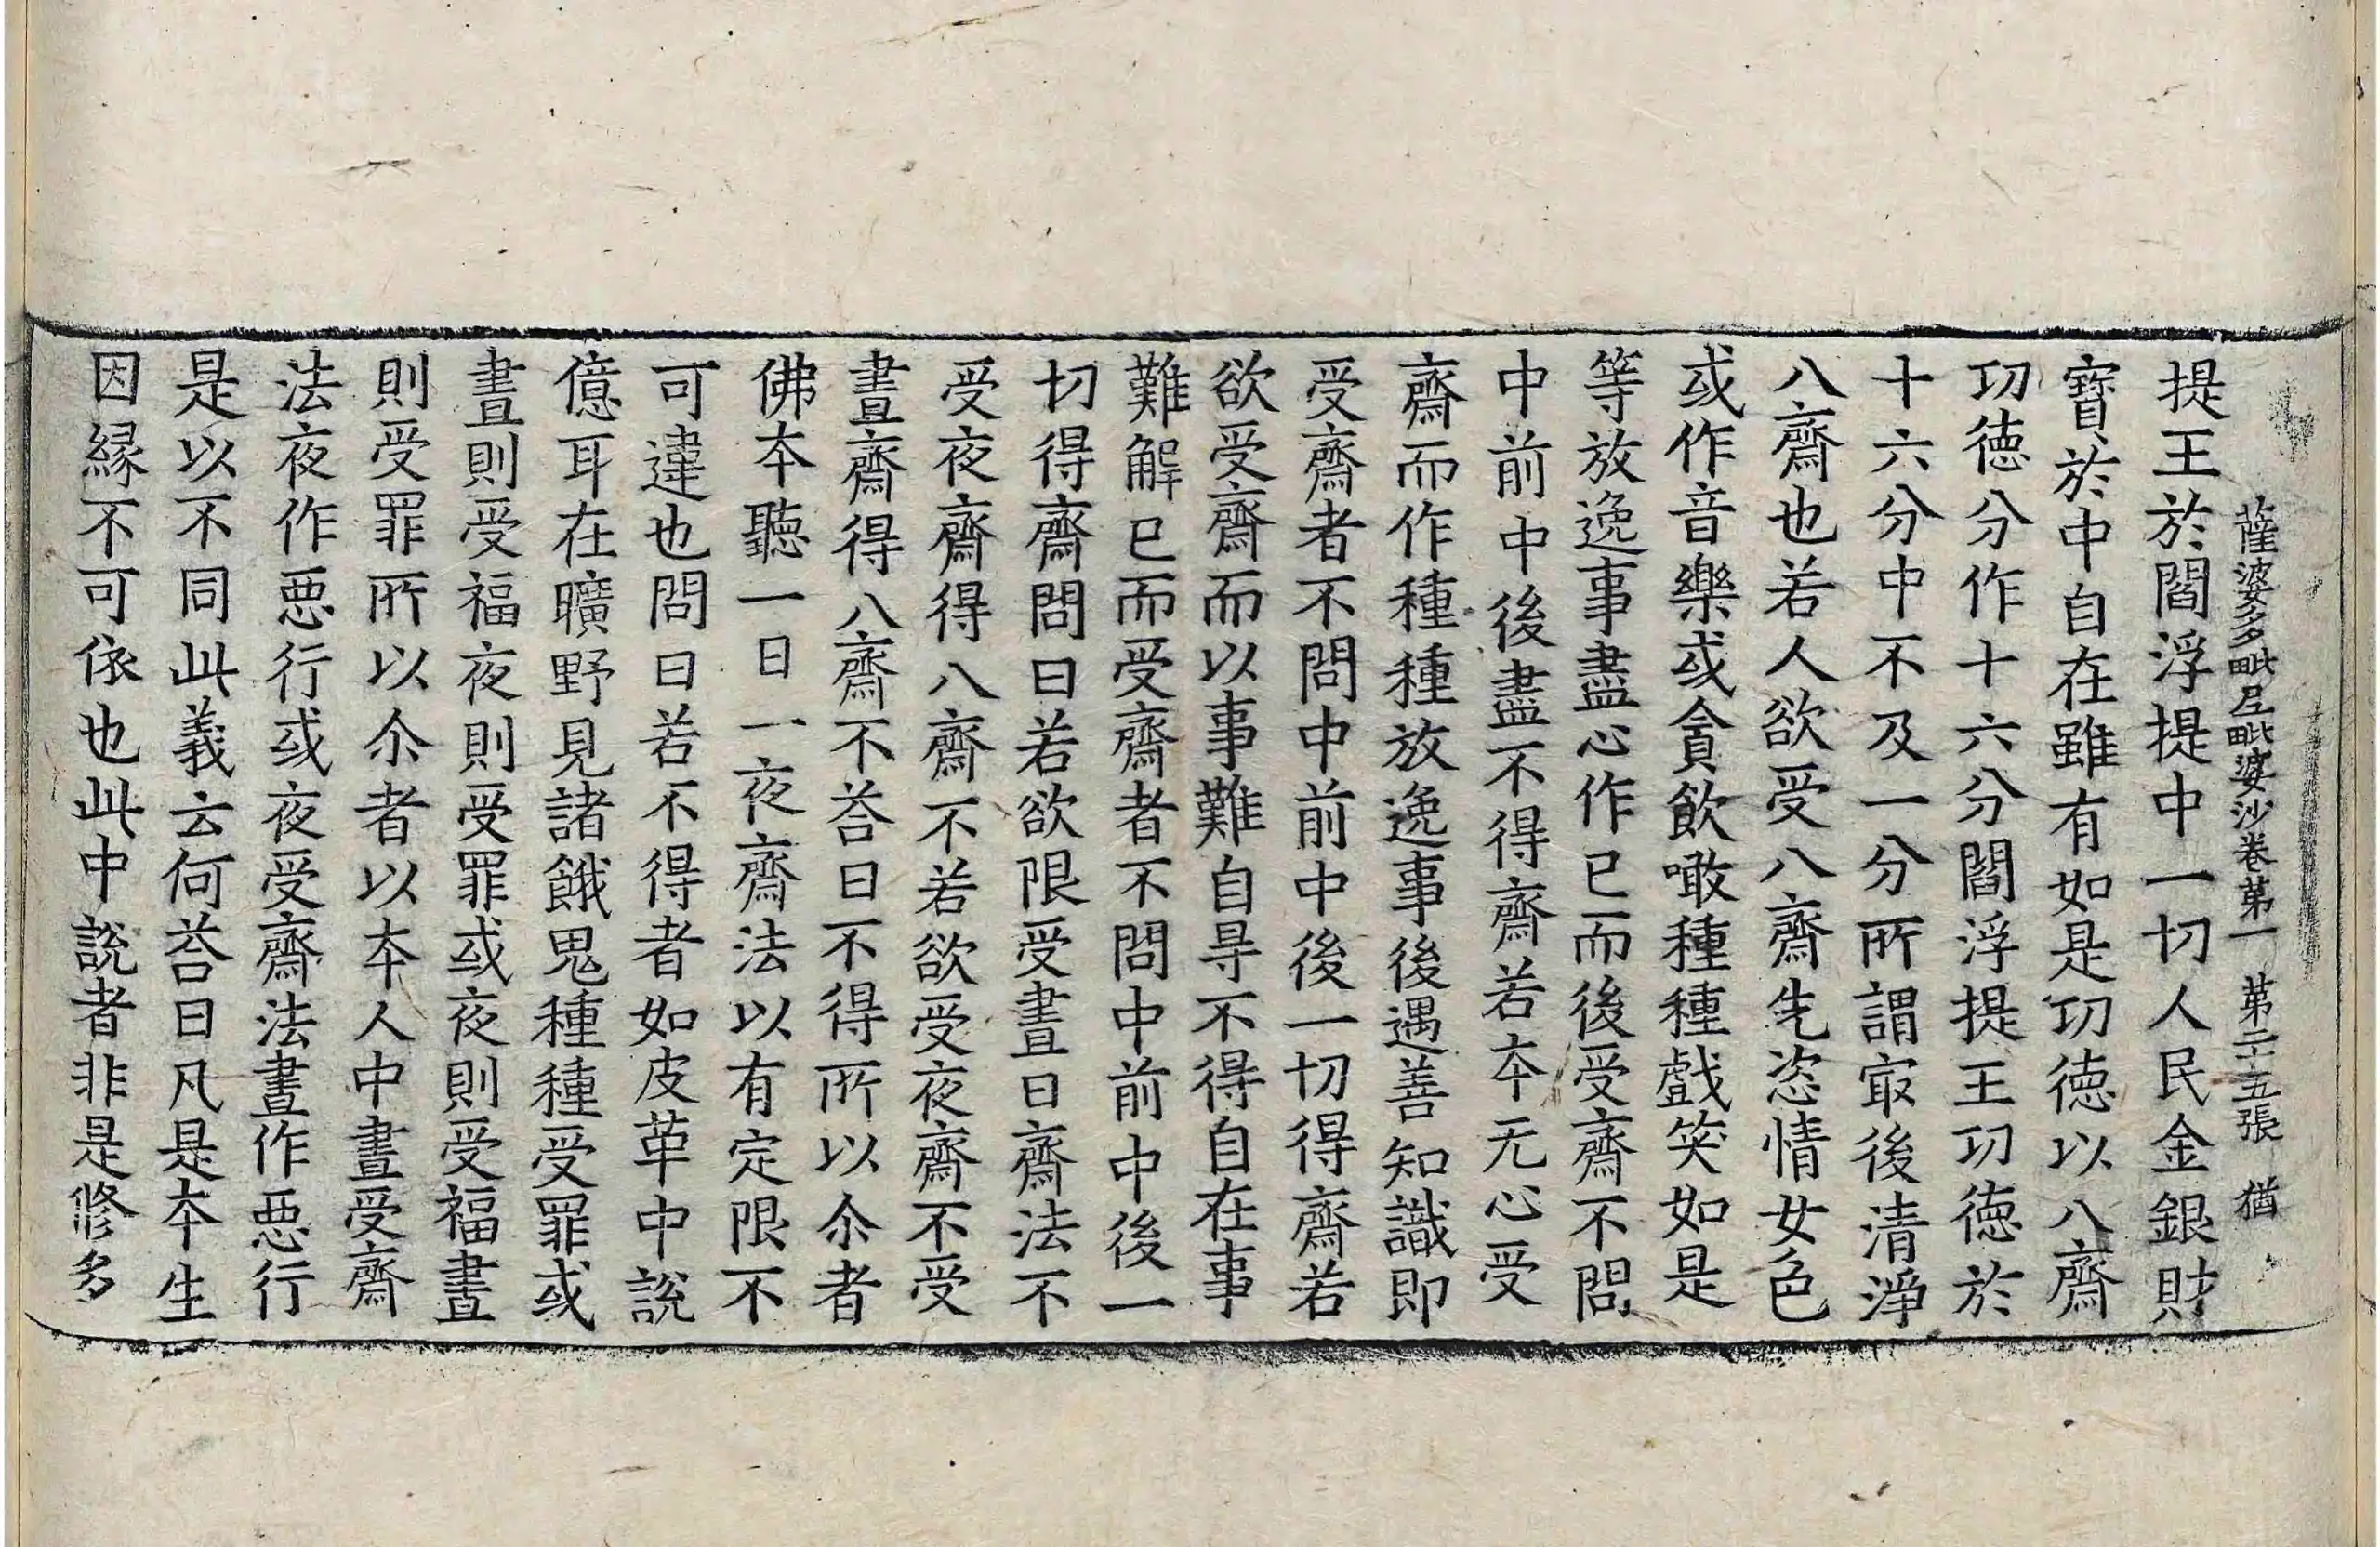 薩婆多毗尼毗婆沙卷第一 第二十五張 猶
提王於閻浮提中一切人民金銀財
寶於中自在雖有如是功徳以八齋
功徳分作十六分閻浮提王功徳於
十六分中不及一分所謂㝡後清淨
八齋也若人欲受八齋先恣情女色
或作音樂或貪飲噉種種戲笑如是
等放逸事盡心作已而後受齋不問
中前中後盡不得齋若本无心受
齋而作種種放逸事後遇善知識即
受齋者不問中前中後一切得齋若
欲受齋而以事難自㝵不得自在事
難解已而受齋者不問中前中後一
切得齋問曰若欲限受晝日齋法不
受夜齋得八齋不若欲受夜齋不受
晝齋得八齋不荅曰不得所以尒者
佛本聽一日一夜齋法以有定限不
可違也問曰若不得者如皮革中說
億耳在曠野見諸餓鬼種種受罪或
晝則受福夜則受罪或夜則受福晝
則受罪所以尒者以本人中晝受齋
法夜作惡行或夜受齋法晝作惡行
是以不同此義云何荅曰凡是本生
因縁不可依也此中說者非是修多